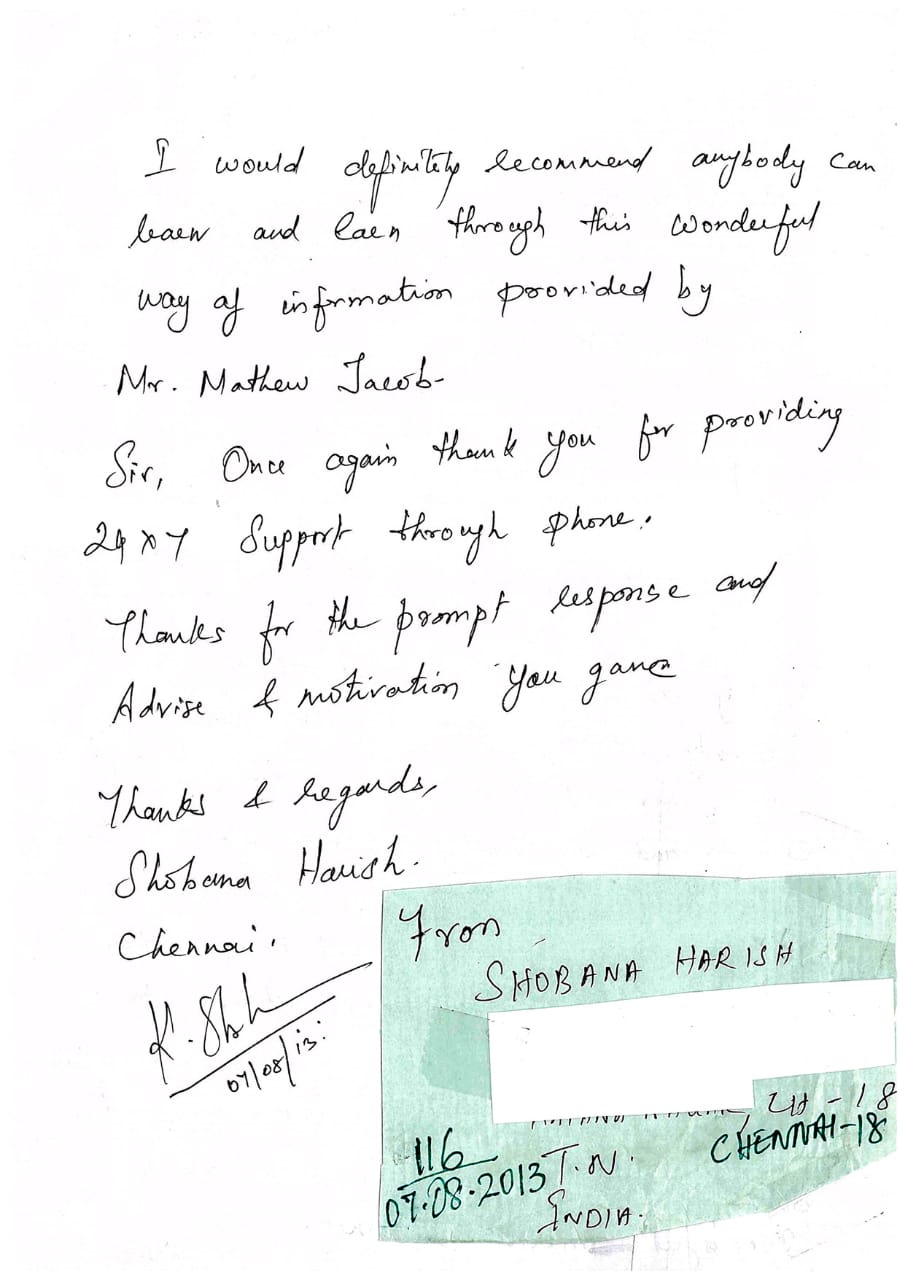 I would definitely recommend anybody can
learn and earn through this wonderful
way of information provided by
Mr. Mathew Jacob-
Sir, Once again thank you for providing
24x7 Support through phone.
Thanks for the prompt response and
Advise & motivation you gave
Thanks & regards,
Shobana Harish.
Chennai.
K. Sh
07/08/13.
From
SHOBANA HARISH
CH-18
CHENNAI-18
116
07.08.2013 T.N.
INDIA.